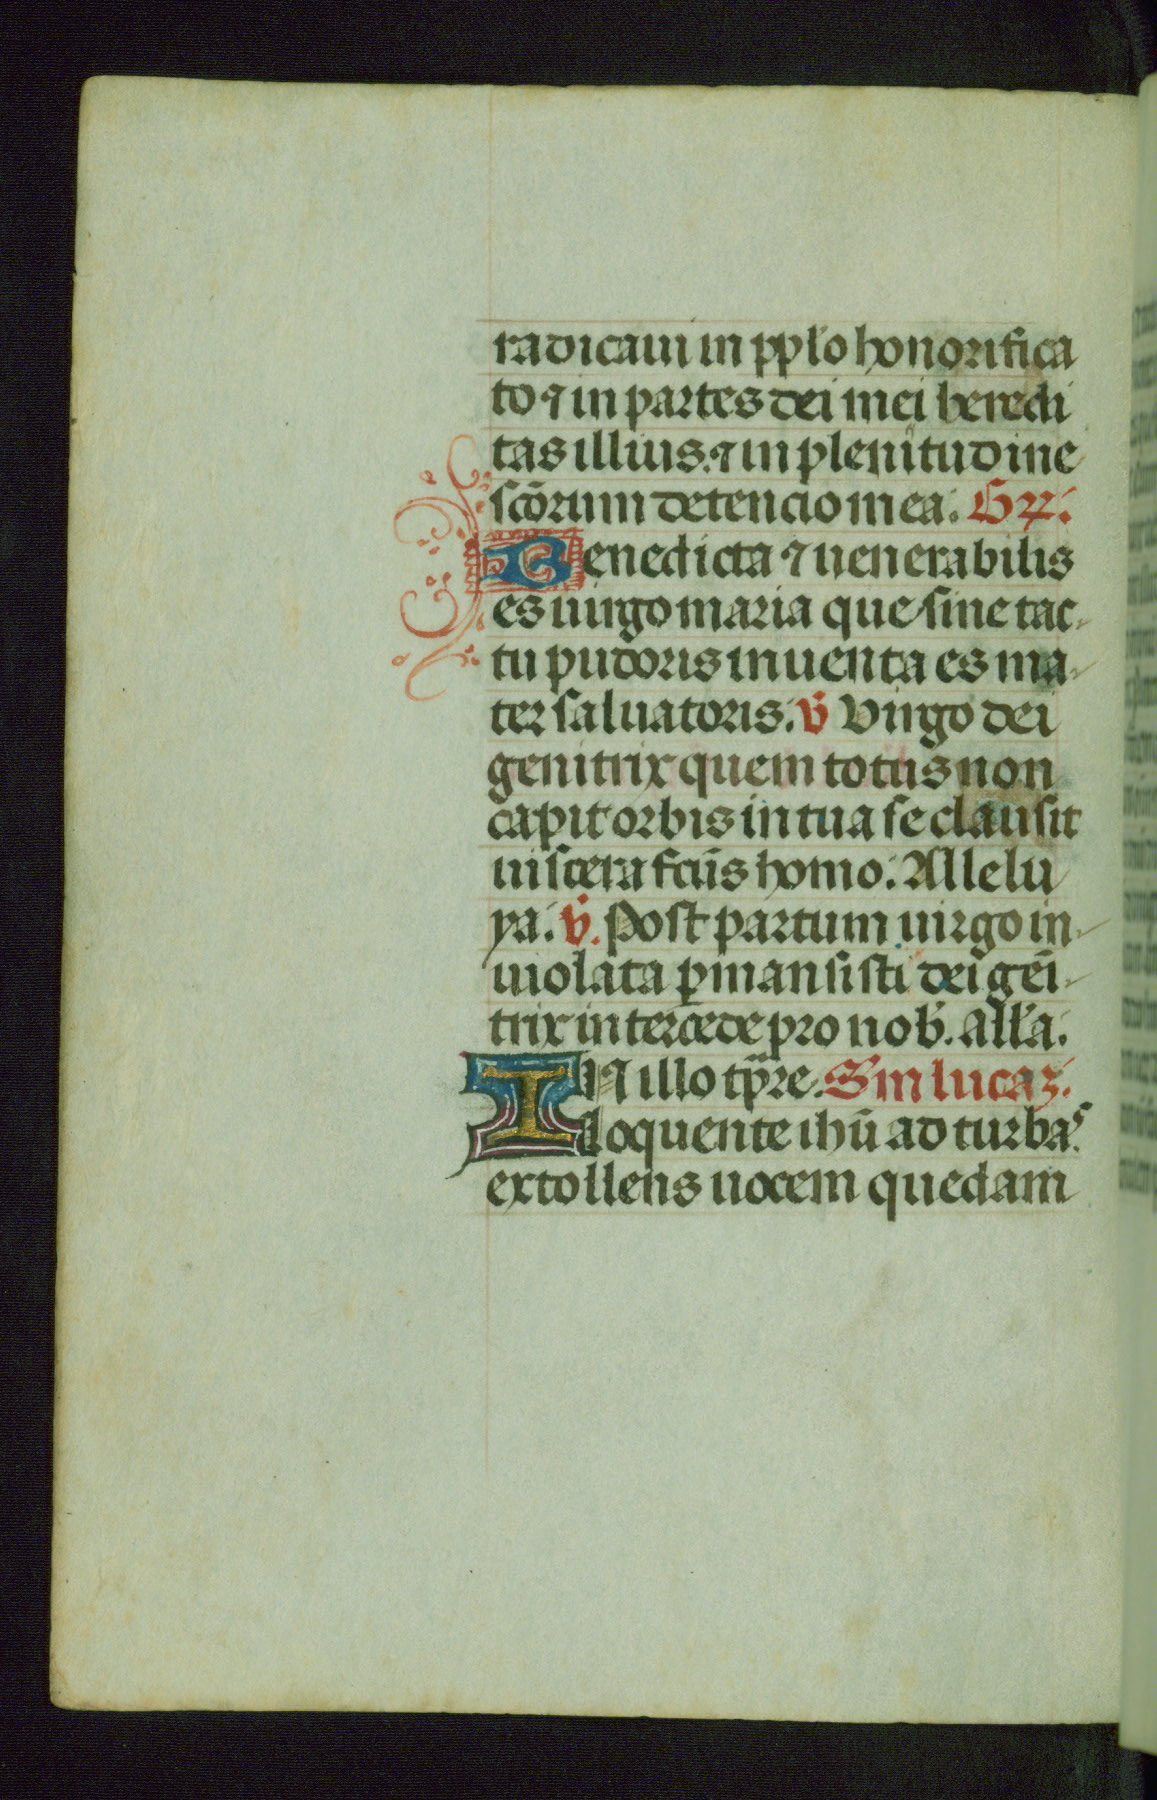 radicaui in ppl̄o honorifica
to ⁊ in partes dei mei heredi
tas illius. ⁊ in plenitudine
scōrum detencio mea. Gr̄.
Benedicta ⁊ uenerabilis
es uirgo maria que sine tac-
tu pudoris inuenta es ma-
ter saluatoris. v̄ Virgo dei
genitrix quem totus non
capit orbis in tua se clausit
uiscera fcūs homo. Allelu
ya. v̄. Post partum uirgo in-
uiolata ꝑmansisti dei geī-
trix intercede pro nob̄. all̄a.
IN illo tp̄re. Sm lucaꝫ.
Loquente ihū ad turbas.
extollens uocem quedam